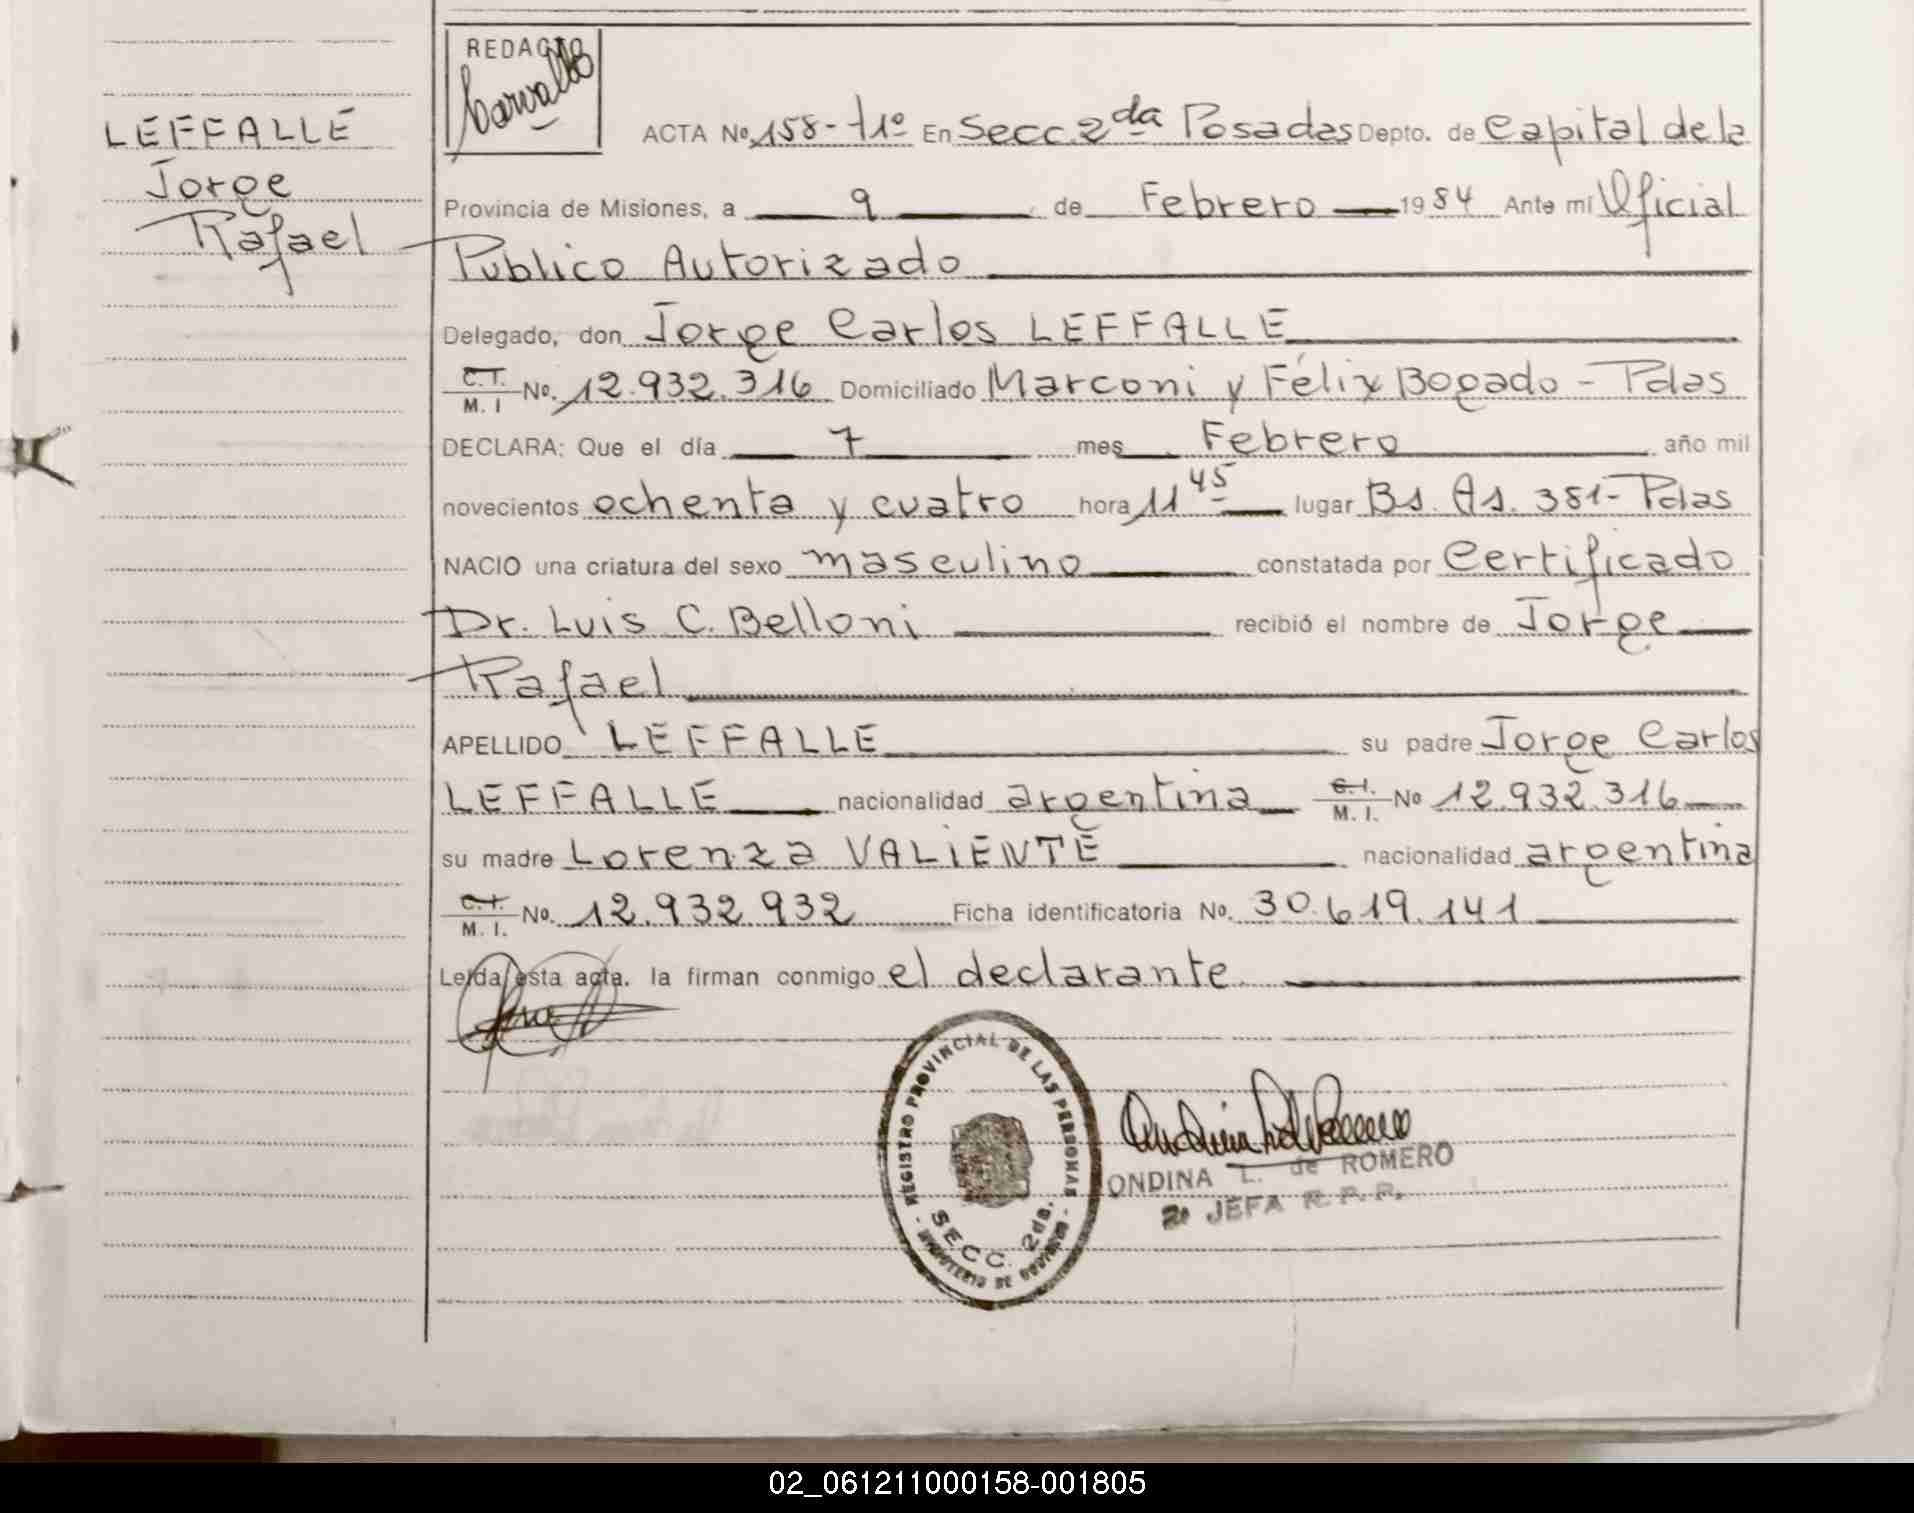 LEFFALLE
Jorge
Rafael
REDACTO
Carvallo
ACTA No. 158-T1º En Secc. 2da Posadas Depto. de Capital de la
Provincia de Misiones, a 9 de Febrero 1984 Ante mi Oficial
Publico Autorizado
Delegado, don Jorge Carlos LEFFALLE
C.I. M. I No. 12.932.316 Domiciliado Marconi y Félix Bogado - Pdas
DECLARA: Que el día 7 mes Febrero año mil
novecientos ochenta y cuatro hora 11 45 lugar Bs. As. 381- Pdas
NACIO una criatura del sexo masculino constatada por Certificado
Dr. Luis C. Belloni recibió el nombre de Jorge
Rafael
APELLIDO LEFFALLE su padre Jorge Carlos
LEFFALLE nacionalidad argentina C.I. M. I. No 12.932.316
su madre Lorenza VALIENTE nacionalidad argentina
C.I. M. I. No. 12.932.932 Ficha identificatoria No. 30.619.141
Leída esta acta. la firman conmigo el declarante
REGISTRO PROVINCIAL DE LAS PERSONAS
SECC. 2da.
MINISTERIO DE GOBIERNO
ONDINA L. de ROMERO
JEFA R. P. P.
02_061211000158-001805